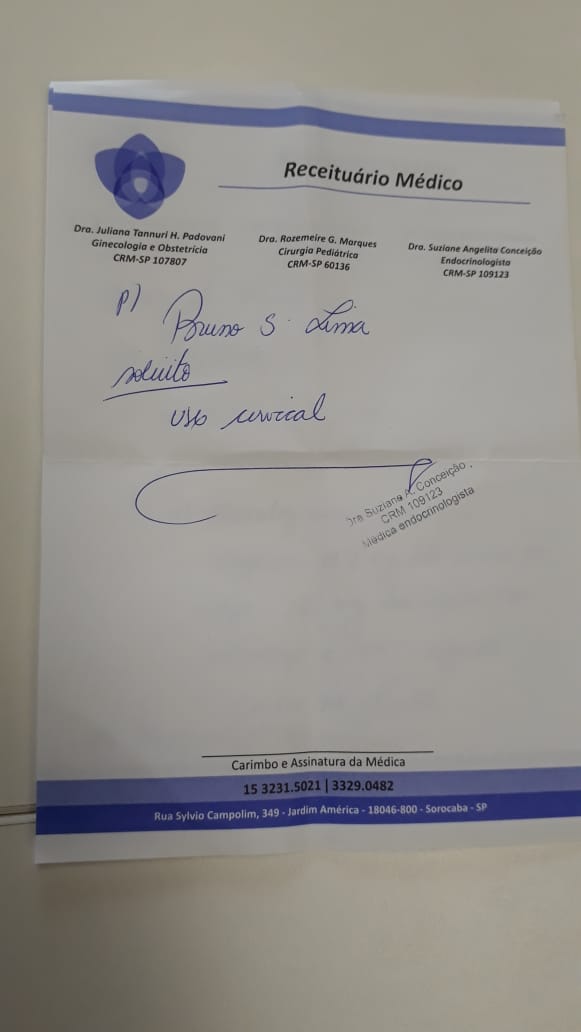 Receituário Médico
Dra. Juliana Tannuri H. Padovani
Ginecologia e Obstetrícia
CRM-SP 107807
Dra. Rozemeire G. Marques
Cirurgia Pediátrica
CRM-SP 60136
Dra. Suziane Angelita Conceição
Endocrinologista
CRM-SP 109123
p)
Bruno S. Lima
solicito
USG cervical
Dra Suziane A. Conceição
CRM 109123
Médica endocrinologista
Carimbo e Assinatura da Médica
15 3231.5021 | 3329.0482
Rua Sylvio Campolim, 349 - Jardim América - 18046-800 - Sorocaba - SP